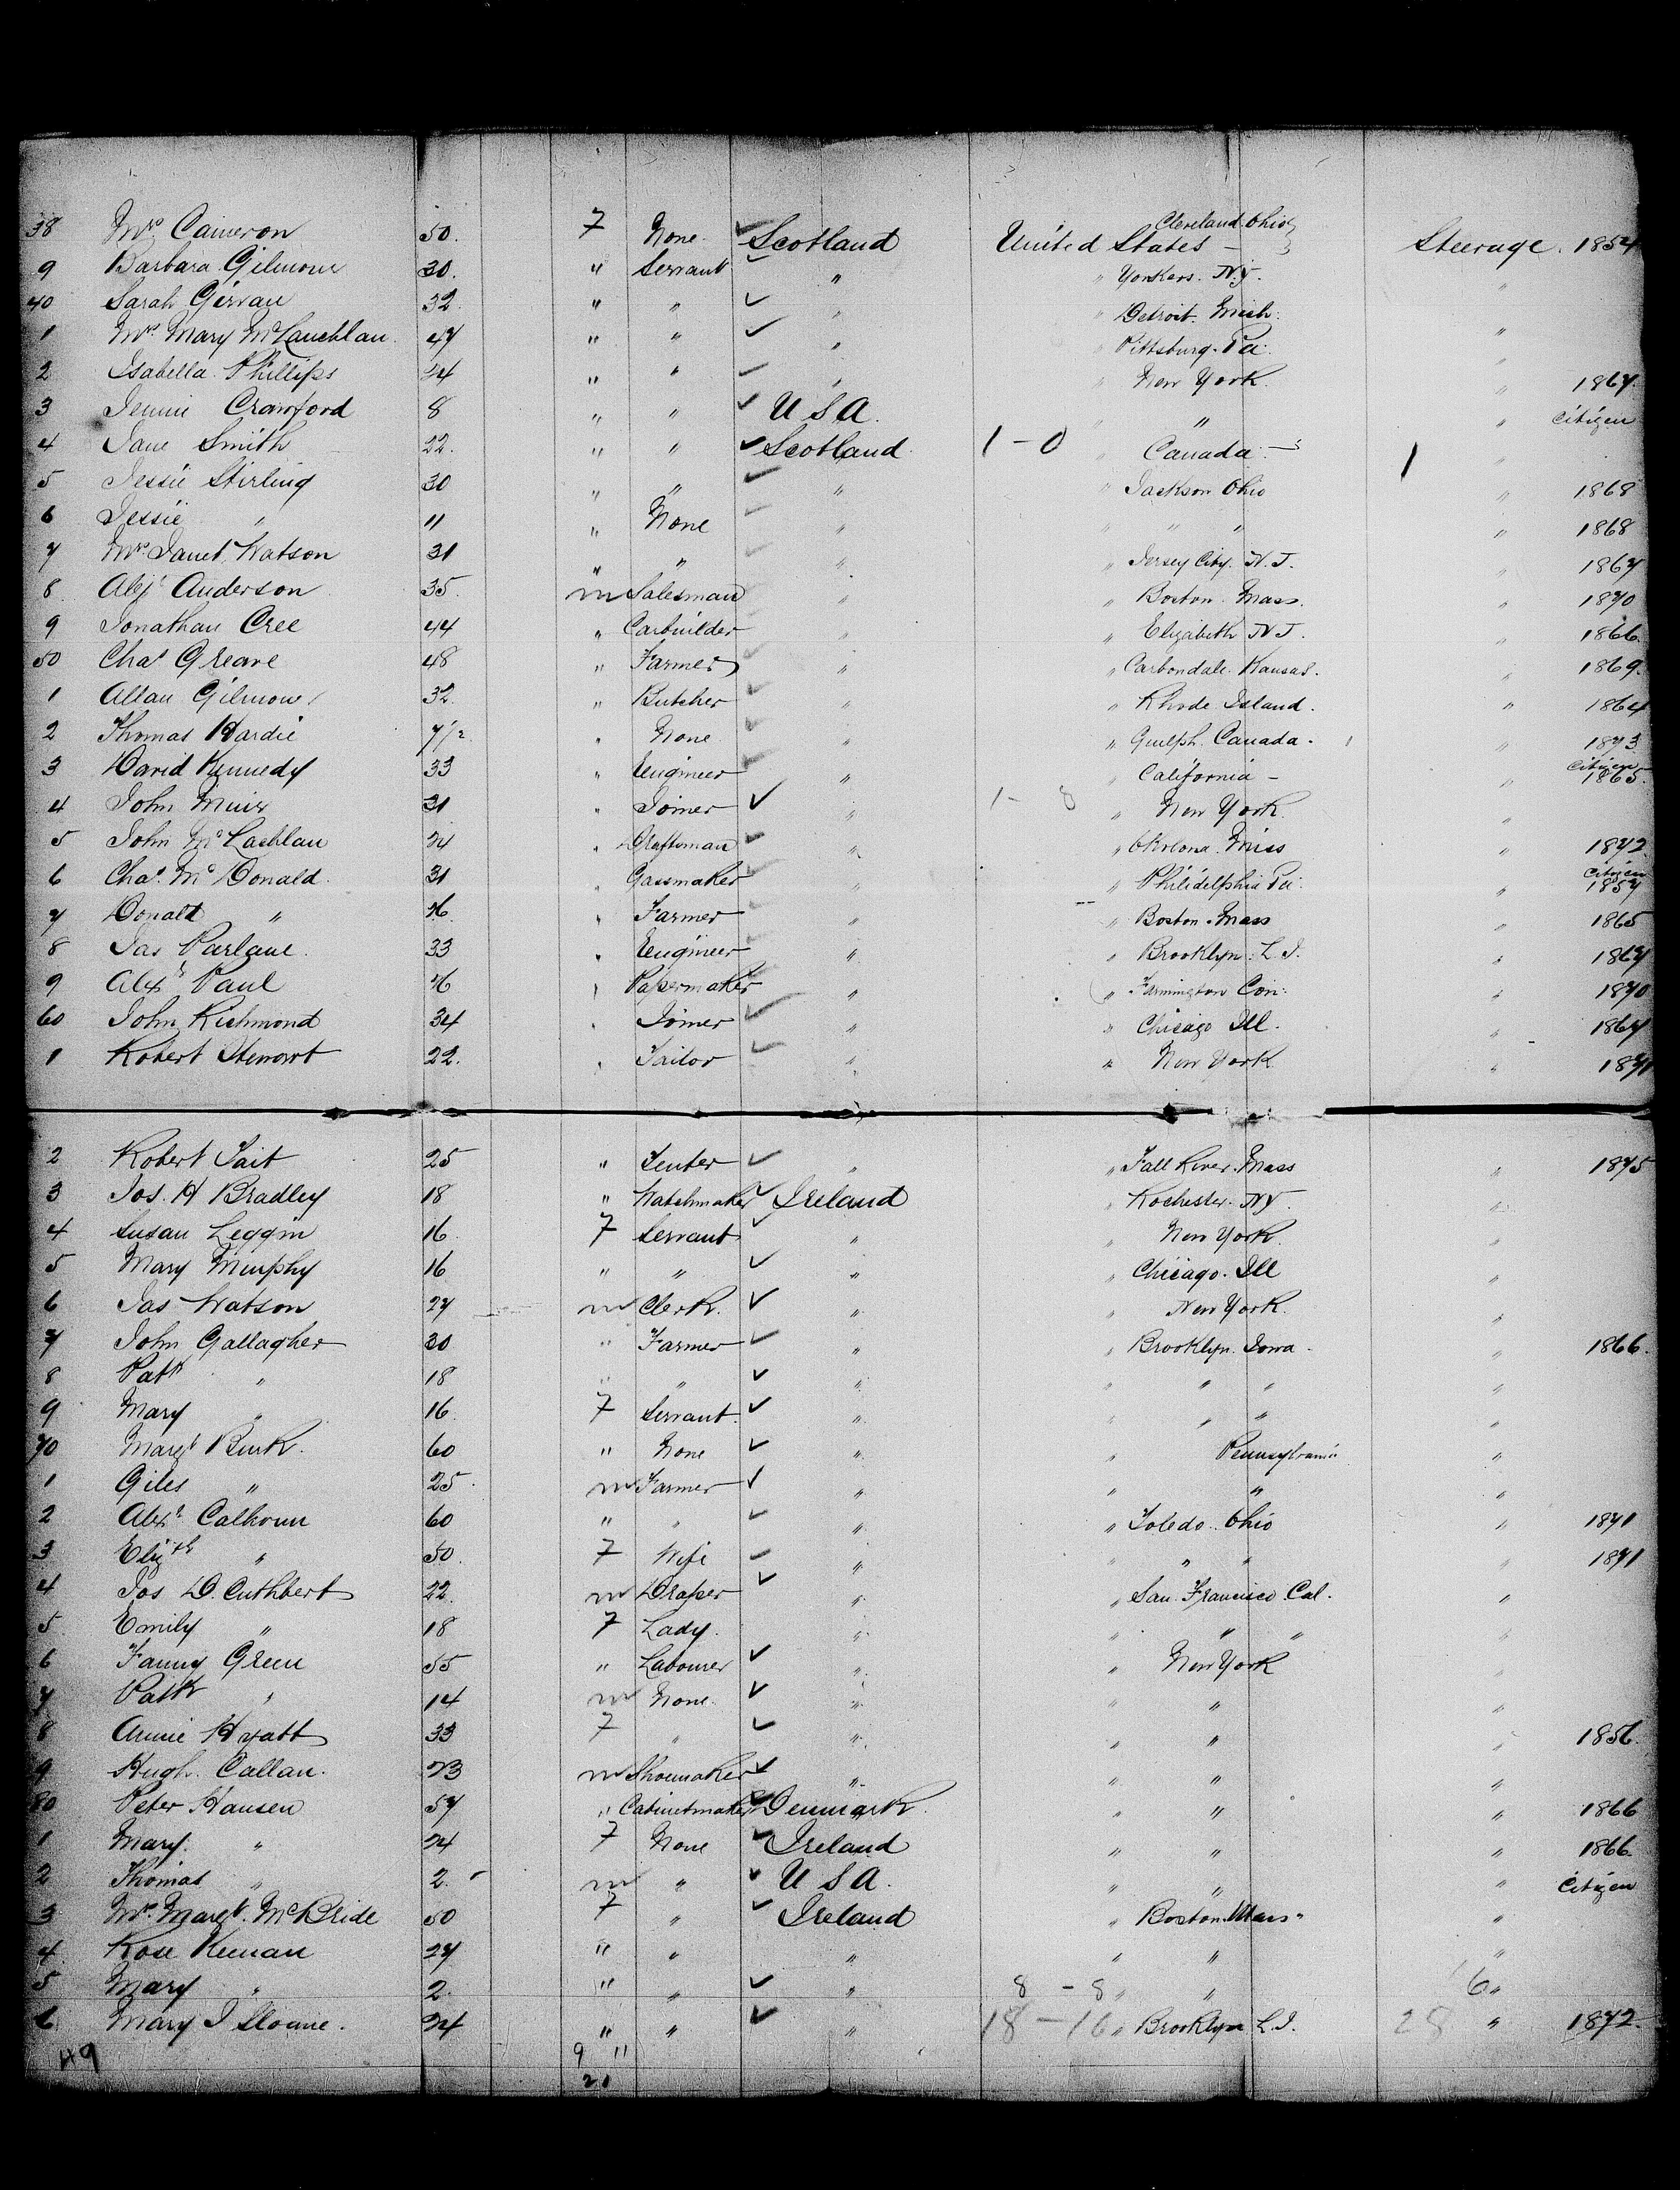 38 Mrs Cameron 50. 7 None. Scotland United States - Cleveland Ohio Steerage. 1854
9 Barbara Gilmour 30. " Servant " " Yonkers. N.Y. "
40 Sarah Girvan 32 " " " " Detroit. Mich: "
1 Mrs Mary McLauchlan. 47 " " " " Pittsburg. Pa: "
2 Isabella Phillips 24 " " " " New York. " 1867.
3 Jennie Crawford 8 " " U S A. " " " Citizen
4 Jane Smith 22. " " Scotland. 1 - 0 " Canada - 1 "
5 Jessie Stirling 30 " " " " Jackson Ohio " 1868
6 Jessie " 11 " None " " " " " 1868
7 Mrs Janet Watson 31 " " " " Jersey City. N.J. " 1867
8 Alexr Anderson 35. m Salesman " " Boston. Mass. " 1870
9 Jonathan Cree 44 " Carbuilder " " Elizabeth N.J. " 1866.
50 Chas Greave 48 " Farmer " " Carbondale. Kansas. " 1869.
1 Allan Gilmour 32 " Butcher " " Rhode Island. " 1864
2 Thomas Hardie 7/12 " None " " Guelph. Canada. " 1873
3 David Kennedy 33 " Engineer " " California - " Citizen 1865.
4 John Muir 31 " Joiner " 1 - 8 " New York. "
5 John McLachlan 24 " Draftsman " " Okolona. Miss " 1872
6 Chas. McDonald. 31 " Gassmaker " " Philidelphia Pa: " Citizen 1857
7 Donald " 26. " Farmer " " Boston. Mass 1865
8 Jas Parlane. 33 " Engineer " " Brooklyn. L.I. " 1867
9 Alexr Paul 26 " Papermaker " " Farmington Con: " 1870
60 John Richmond 34 " Joiner " " Chicago Ill. " 1867
1 Robert Stewart 22. " Tailor " " New York. " 1871
2 Robert Tait 25 " Tenter " " Fall River. Mass " 1875
3 Jos. H Bradley 18 " Watchmaker Ireland " Rochester. NY. "
4 Susan Leggin 16. 7 Servant " " New York. "
5 Mary Murphy 16 " " " " Chicago. Ill "
6 Jas Watson 27 m Clerk. " " New York. "
7 John Gallagher 30 " Farmer " " Brooklyn. Iowa. " 1866.
8 Patk " 18 " " " " " " "
9 Mary " 16. 7 Servant. " " " " "
70 Margt Burk. 60 " None " " Pennsylvania "
1 Giles " 25. m Farmer " " " "
2 Alexr Calhoun 60 " " " " Toledo. Ohio " 1871
3 Elizth " 50. 7 Wife " " " " " 1871
4 Jos D. Cuthbert 22. m Draper " " San. Francisco. Cal. "
5 Emily " 18 7 Lady. " " " " "
6 Fanny Green 55 " Labourer " " New York "
7 Patk " 14 m None. " " " "
8 Annie Hyatt 33 7 " " " " " 1856.
9 Hugh. Callan. 23 m Shoemaker " " " "
80 Peter Hansen 57 " Cabinetmaker Denmark. " " " 1866
1 Mary. " 24 7 None Ireland " " " 1866.
2 Thomas " 2. m " U S A. " " " Citizen
3 Mrs. Margt. McBride 50 7 " Ireland " Boston. Mass. "
4 Rose Keenan 27 " " " " " "
5 Mary " 2. " " " 8 - 8 " " 6 "
6 Mary J Sloane. 24 " " " 18 - 16 " Brooklyn L.I. 28 " 1872.
49 9 11
21